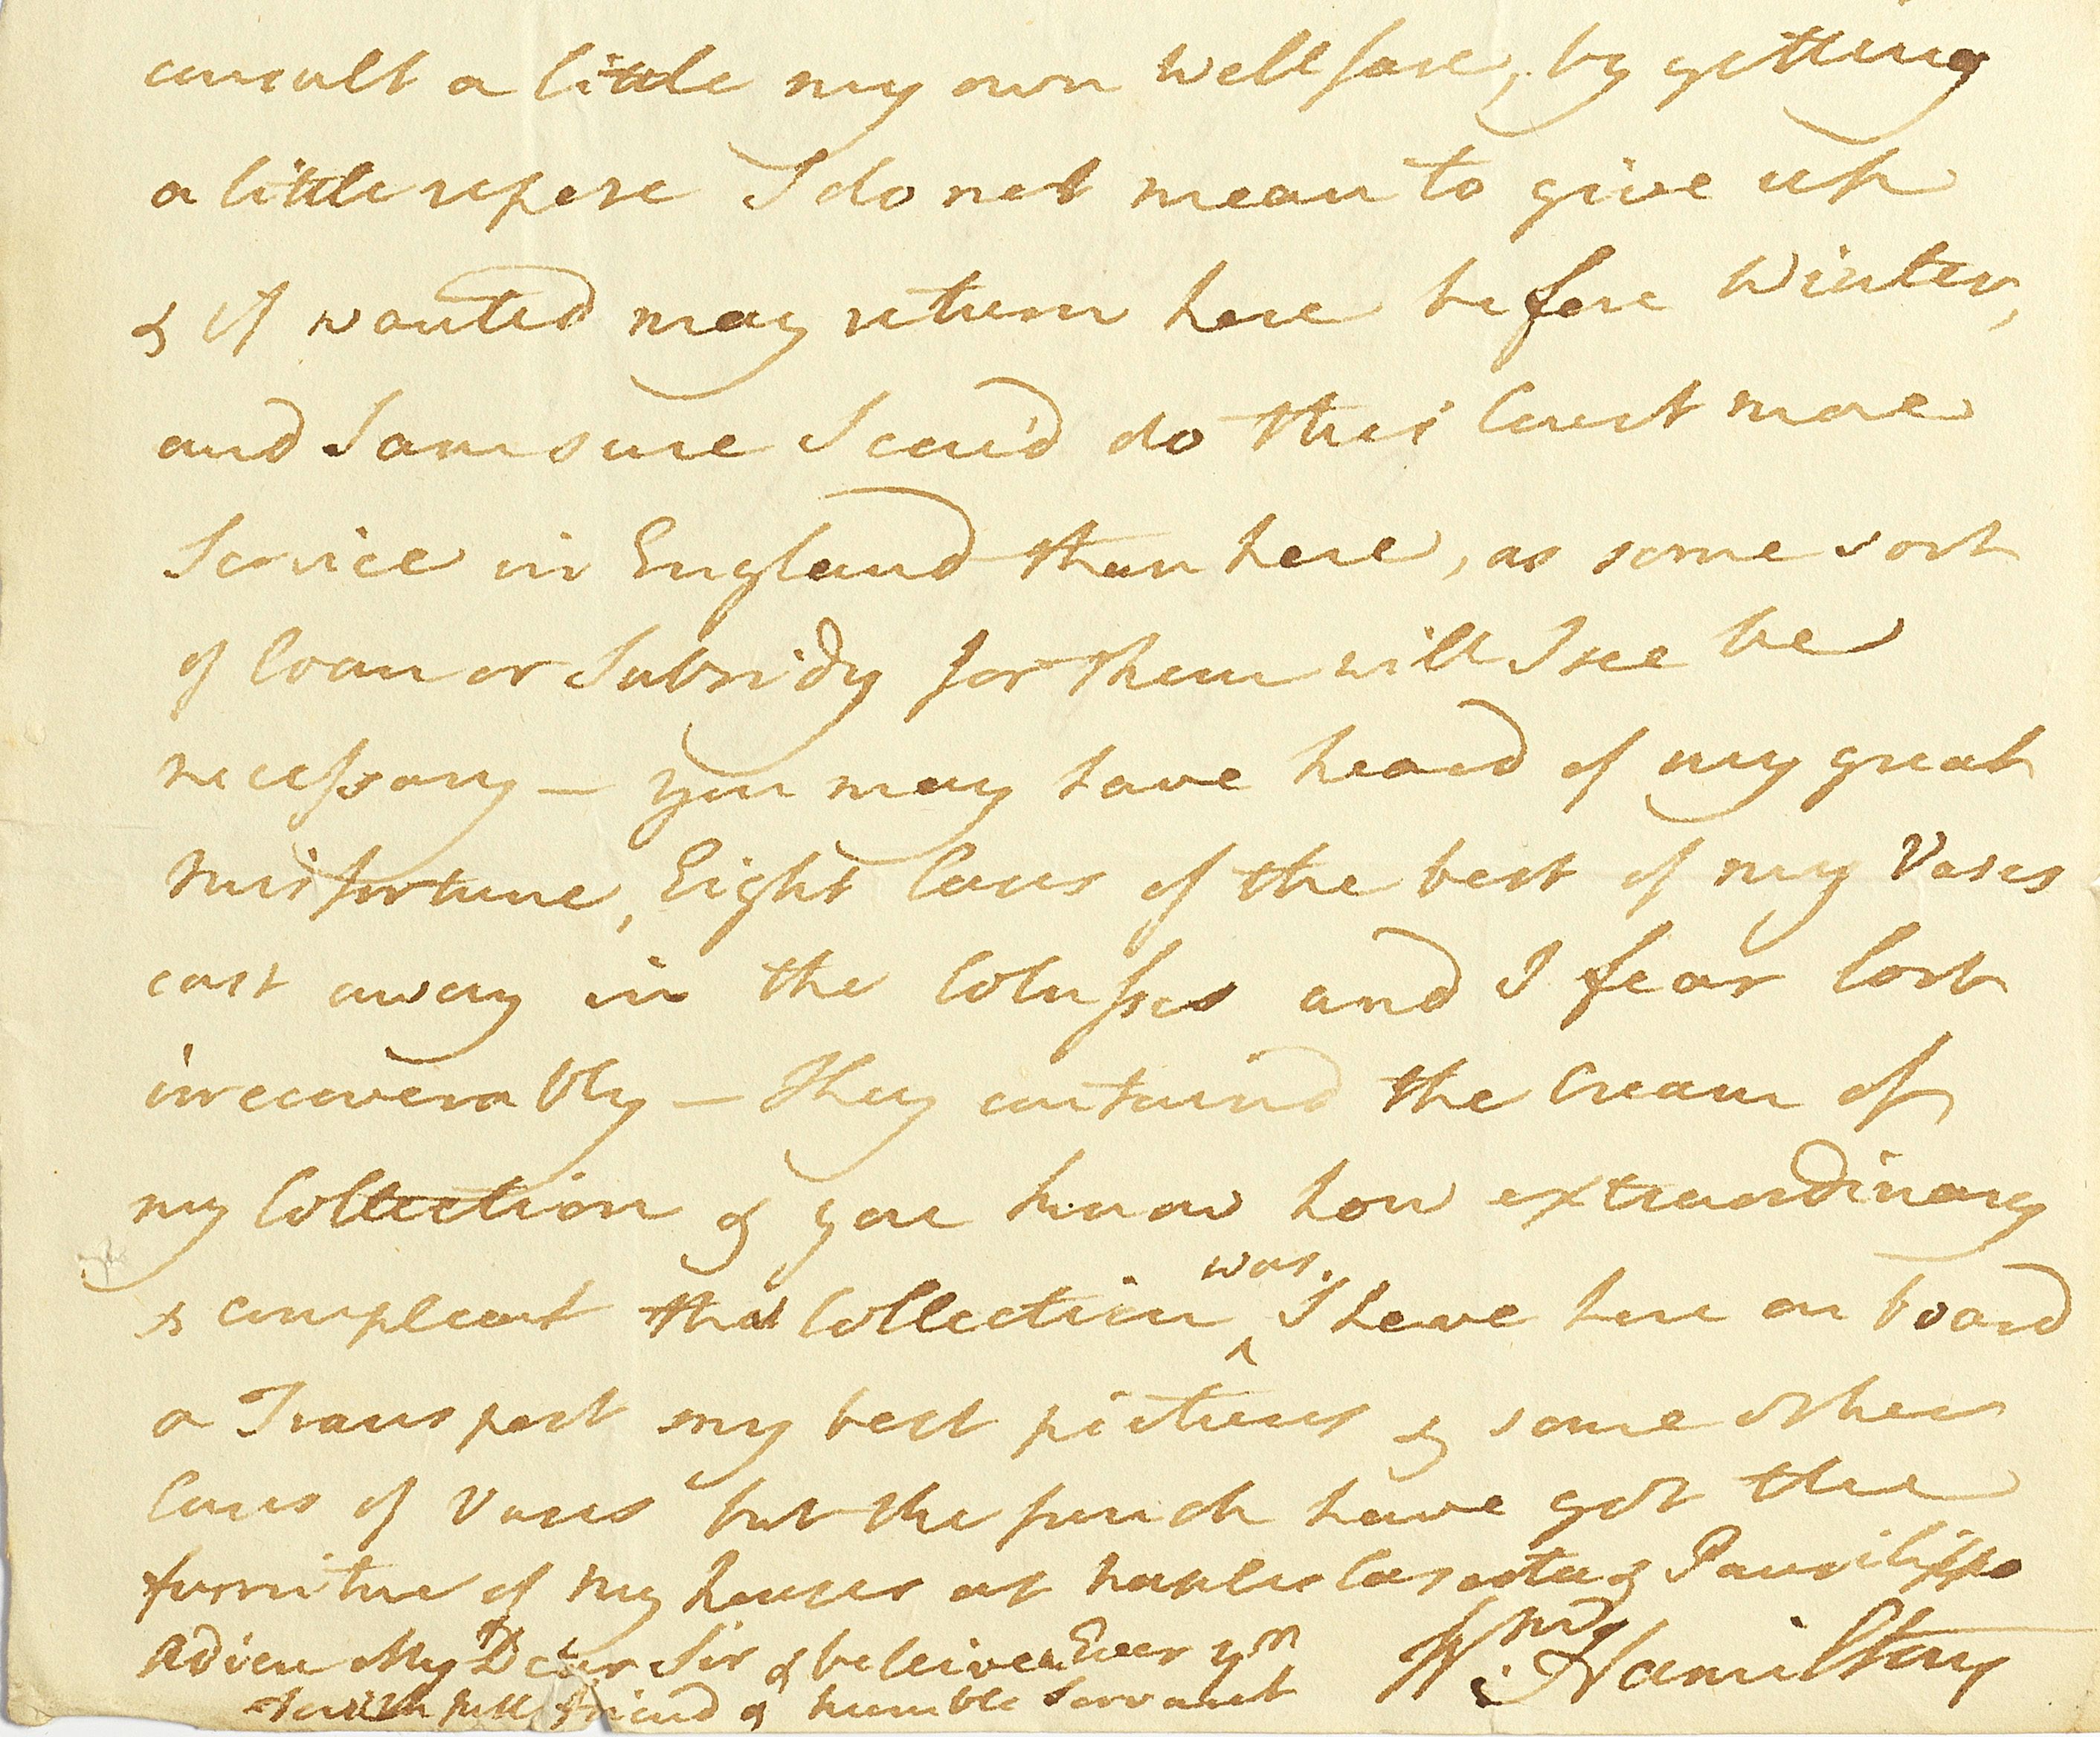 consult a little my own wellfare, by getting
a little repose I do not mean to give up
& if wanted may return here before Winter,
and I am sure I cou'd do this Court more
Service in England than here, as some sort
of loan or Subsidy for them will I see be
necessary — you may have heard of my great
misfortune, Eight Cases of the best of my Vases
cast away in the Colusses and I fear lost
irrecoverably — they contained the Cream of
my Collection & you know how extraordinary
& compleat that Collection was. I have here on board
a Transport my best pictures & some other
Cases of Vases but the french have got the
furniture of my houses at Naples Caserta & Pausilippo
Adieu My Dear Sir & beleive me Ever yrs
faithfull friend & humble Servant
Wm. Hamilton